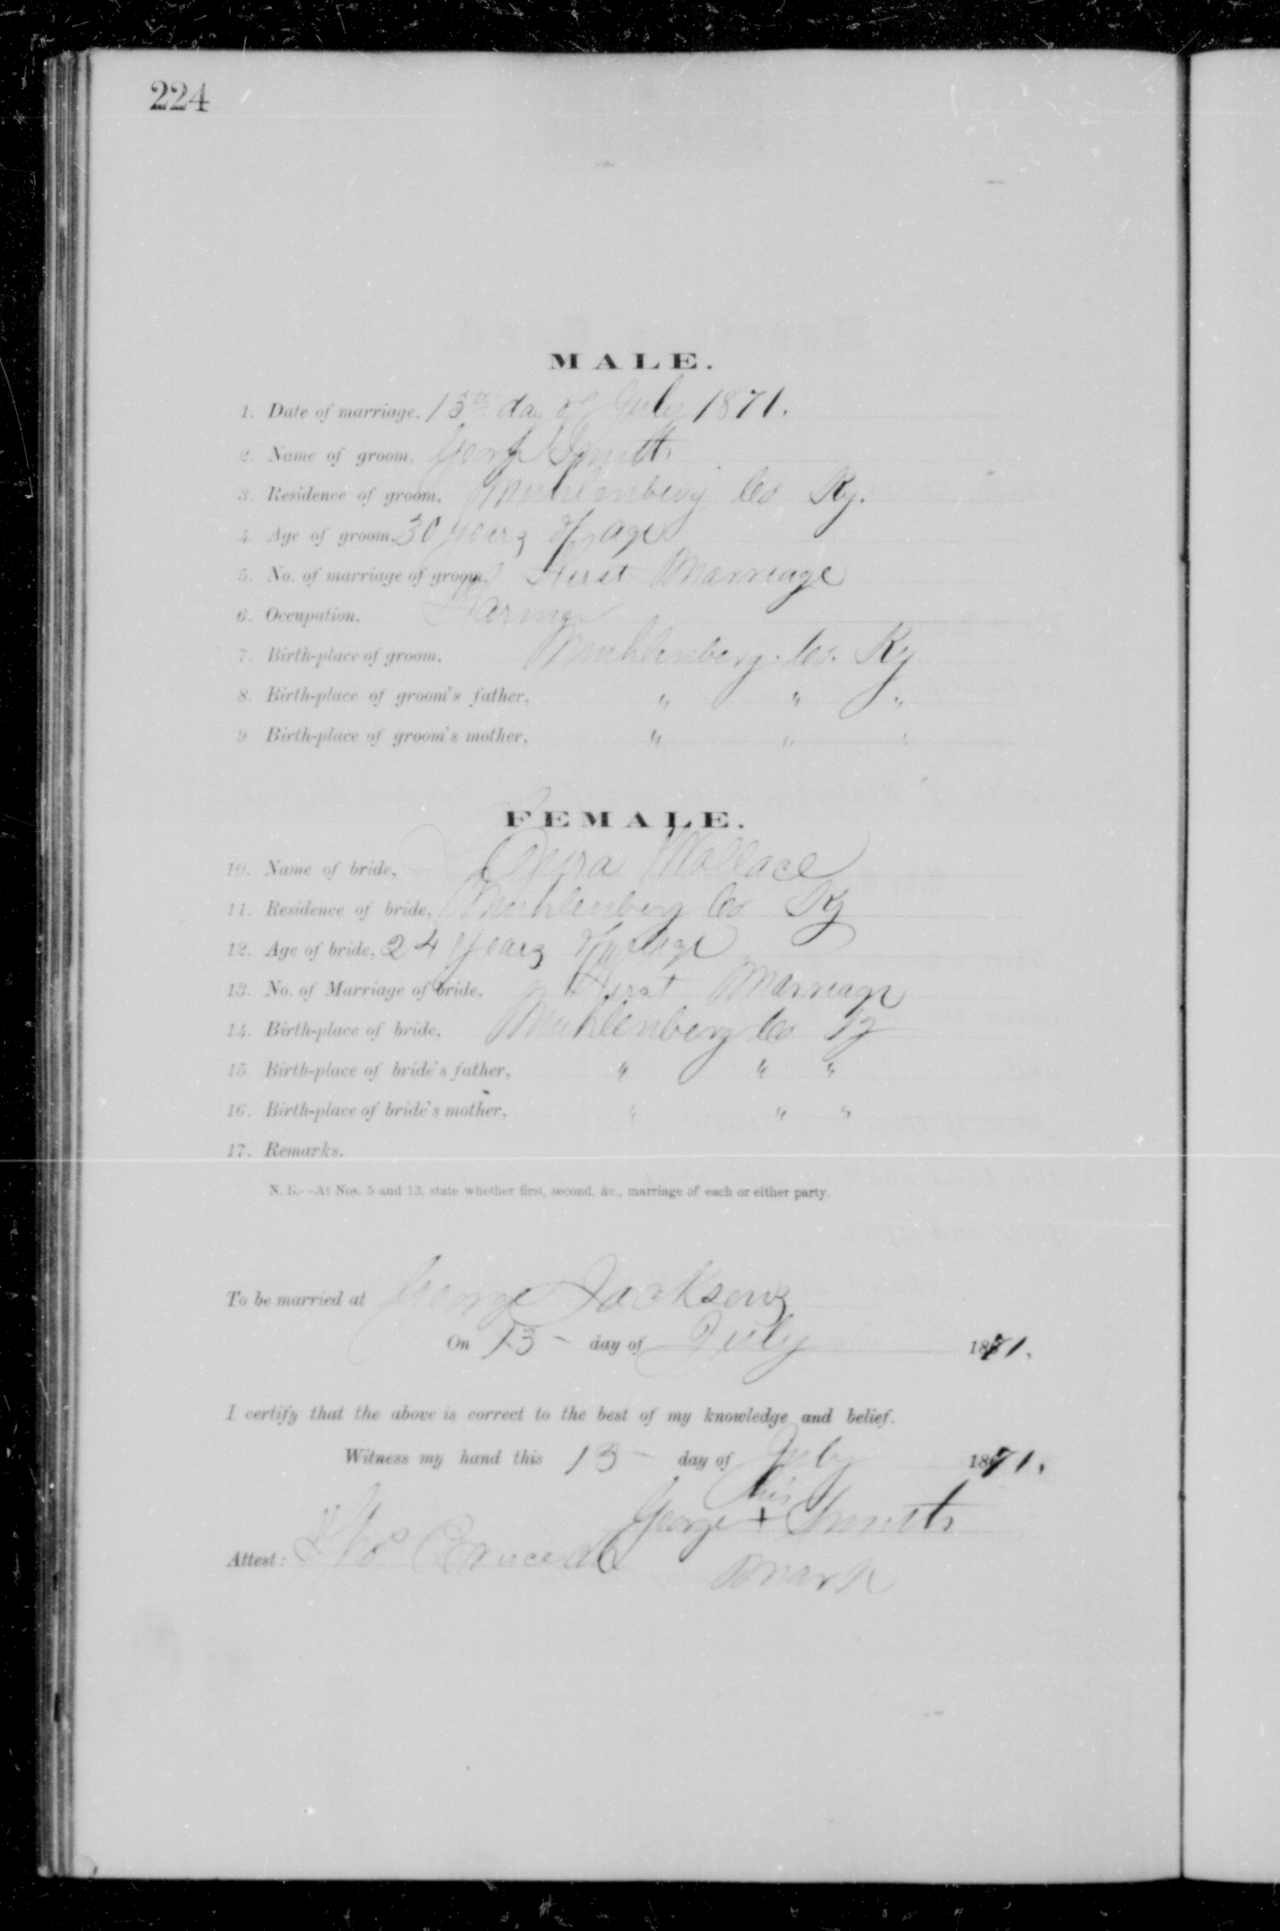 224
MALE.
1. Date of marriage, 13th day of July 1871.
2. Name of groom, George Smith
3. Residence of groom, Muhlenberg Co Ky.
4. Age of groom, 30 years of age
5. No. of marriage of groom, First Marriage
6. Occupation, Farmer
7. Birth-place of groom, Muhlenberg. Co. Ky.
8. Birth-place of groom's father, " " "
9. Birth-place of groom's mother, " " "
FEMALE.
10. Name of bride, Wallace
11. Residence of bride, Muhlenberg Co Ky
12. Age of bride, 24 years of age
13. No. of Marriage of bride, First Marriage
14. Birth-place of bride, Muhlenberg Co Ky
15. Birth-place of bride's father, " " "
16. Birth-place of bride's mother, " " "
17. Remarks.
N. B.--At Nos. 5 and 13, state whether first, second, &c., marriage of each or either party.
To be married at George Jacksons
On 13 - day of July 1871.
I certify that the above is correct to the best of my knowledge and belief.
Witness my hand this 13 - day of July 1871.
his
George + Smith
Attest: Thos
mark